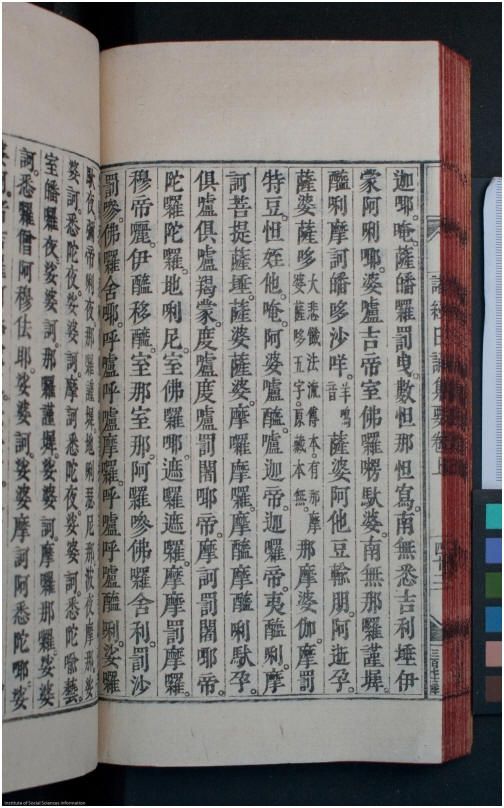 迦㖿。唵。薩皤囉罰曳。數怛那怛寫。南無悉吉利埵伊
蒙阿唎㖿。婆嚧吉帝室佛囉楞馱婆。南無那囉謹墀。
醯唎摩訶皤哆沙咩。羊鳴音 薩婆阿他豆輸朋。阿逝孕。
薩婆薩哆 大悲懺法流傳本。有那摩婆薩哆五字。原藏本無。 那摩婆伽。摩罰
特豆。怛姪他。唵。阿婆嚧醯。嚧迦帝。迦囉帝。夷醯唎。摩
訶菩提薩埵。薩婆薩婆。摩囉摩囉。摩醯摩醯唎馱孕。
俱嚧俱嚧羯蒙。度嚧度嚧罰闍㖿帝。摩訶罰闍㖿帝。
陀囉陀囉。地唎尼。室佛囉㖿。遮囉遮囉。摩摩罰摩囉。
穆帝囇。伊醯移醯。室那室那。阿囉嘇佛囉舍利。罰沙
罰嘇。佛囉舍㖿。呼嚧呼嚧摩囉。呼嚧呼嚧醯唎。娑囉
馱夜。彌帝唎夜。那囉謹墀。地唎瑟尼那。波夜摩那。娑
婆訶。悉陀夜。娑婆訶。摩訶悉陀夜。娑婆訶。悉陀喻藝。
室皤囉夜。娑婆訶。那囉謹墀。娑婆訶。摩囉那囉。娑婆
訶。悉囉僧阿穆佉耶。娑婆訶。娑婆摩訶阿悉陀㖿。娑
諸經日誦集要卷上 四十三
Institute of Social Sciences information